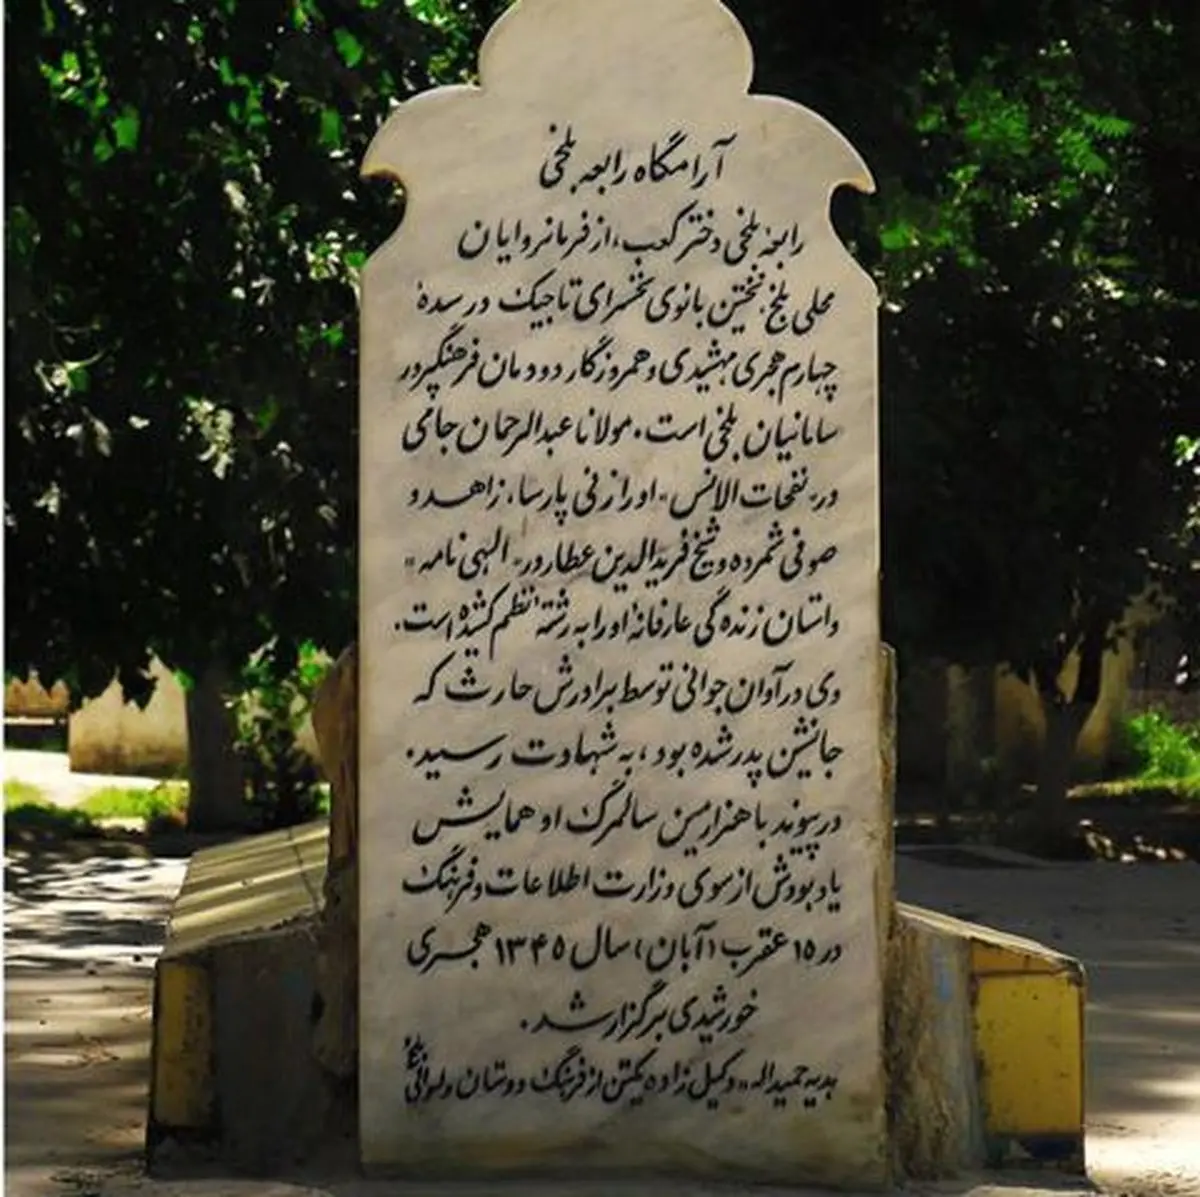 آرامگاه رابعه بلخی
رابعهٔ بلخی دختر کعب، از فرمانروایان
محلی بلخ، نخستین بانوی سخنسرای تاجیک در سدهٔ
چهارم هجری مهشیدی و همروزگار دودمان فرهنگپرور
سامانیان بلخی است. مولانا عبدالرحمان جامی
در «نفحات الانس» او را زنی پارسا، زاهد و
صوفی شمرده و شیخ فریدالدین عطار در «الهی نامه»
داستان زنده گی عارفانهٔ او را به رشتهٔ نظم کشیده است.
وی در آوان جوانی توسط برادرش حارث که
جانشین پدر شده بود، به شهادت رسید.
در پیوند با هزارمین سالمرگ او همایش
یادبودش از سوی وزارت اطلاعات و فرهنگ
در ۱۵ عقرب (آبان) سال ۱۳۴۵ هجری
خورشیدی برگزار شد.
هدیه حمیدالله «وکیل زاده» یکتن از فرهنگ دوستان ولسوالی بلخ